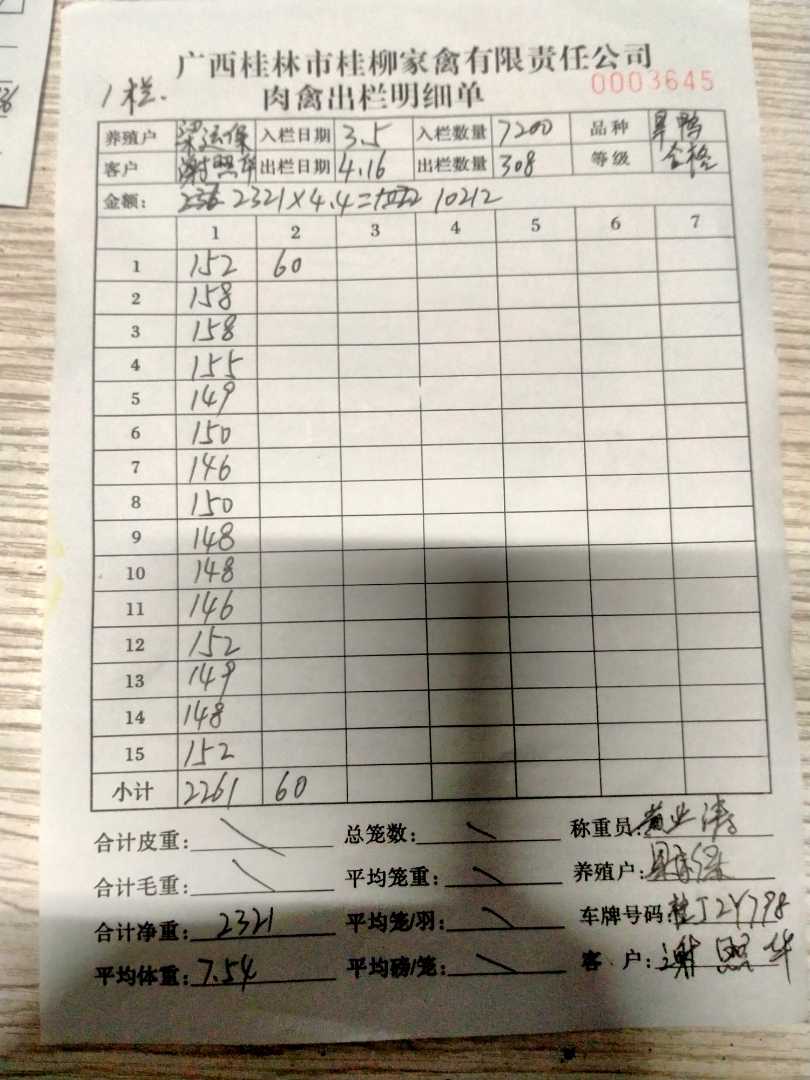 广西桂林市桂柳家禽有限责任公司
1栏. 肉禽出栏明细单 0003645
养殖户 梁运保 入栏日期 3.5 入栏数量 7200 品种 旱鸭
客户 谢照华 出栏日期 4.16 出栏数量 308 等级 合格
金额: 2321×4.4= 10212
1 2 3 4 5 6 7
1 152 60
2 158
3 158
4 155
5 149
6 150
7 146
8 150
9 148
10 148
11 146
12 152
13 149
14 148
15 152
小计 2261 60
合计皮重: 总笼数: 称重员: 业涛
合计毛重: 平均笼重: 养殖户:
合计净重: 2321 平均笼/羽: 车牌号码: 桂J2Y798
平均体重: 7.54 平均磅/笼: 客户: 谢照华